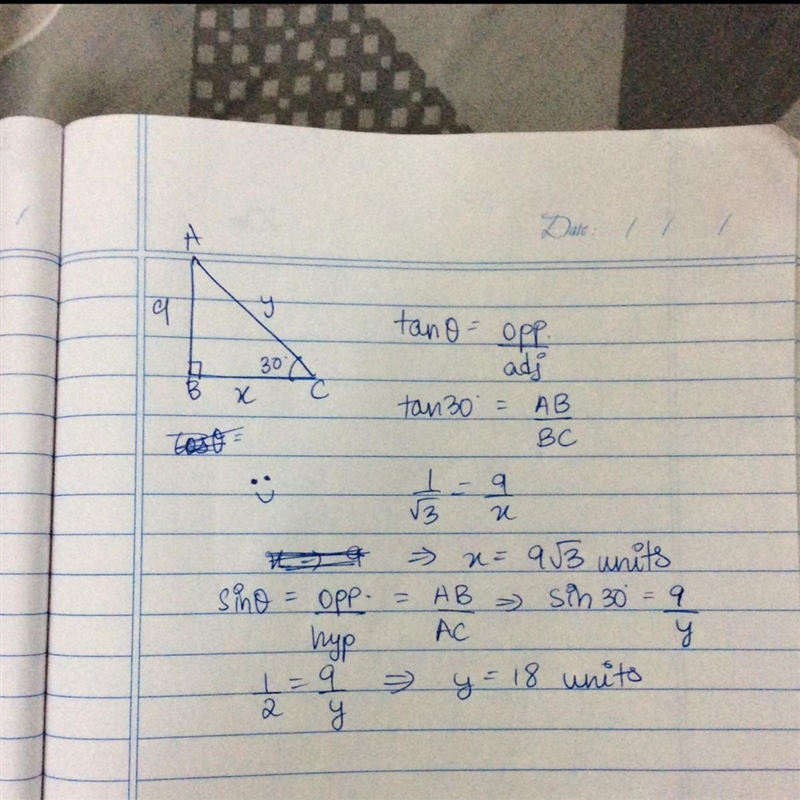 Date: / / /
A
9
y
30°
B
x
C
tanθ = opp. / adj
tan30° = AB / BC
cosθ =
1/√3 = 9/x
x => 9
⇒ x = 9√3 units
sinθ = opp. / hyp = AB / AC ⇒ sin30° = 9 / y
1/2 = 9/y ⇒ y = 18 units